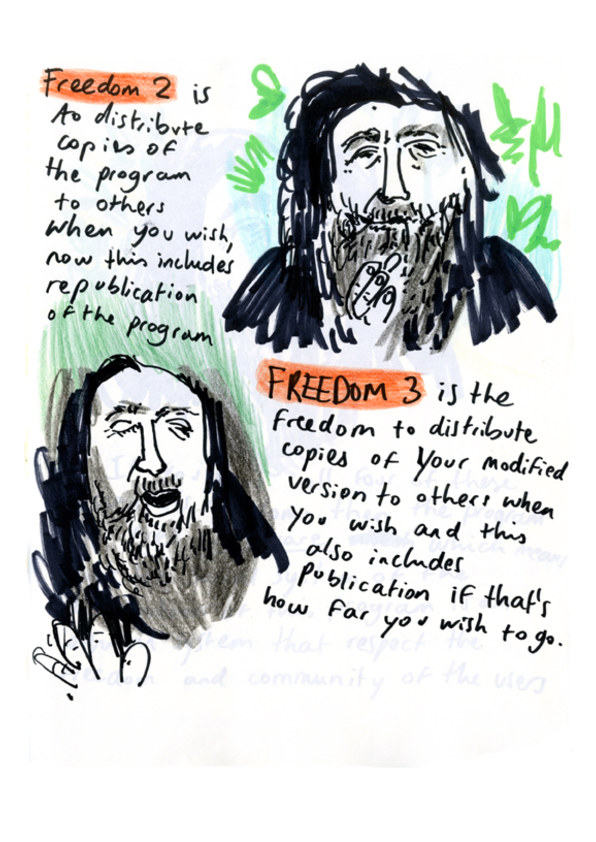 Freedom 2 is
to distribute
copies of
the program
to others
when you wish,
now this includes
republication
of the program
FREEDOM 3 is the
freedom to distribute
copies of your modified
version to others when
you wish and this
also includes
publication if that's
how far you wish to go.
system that respect the
and community of the users